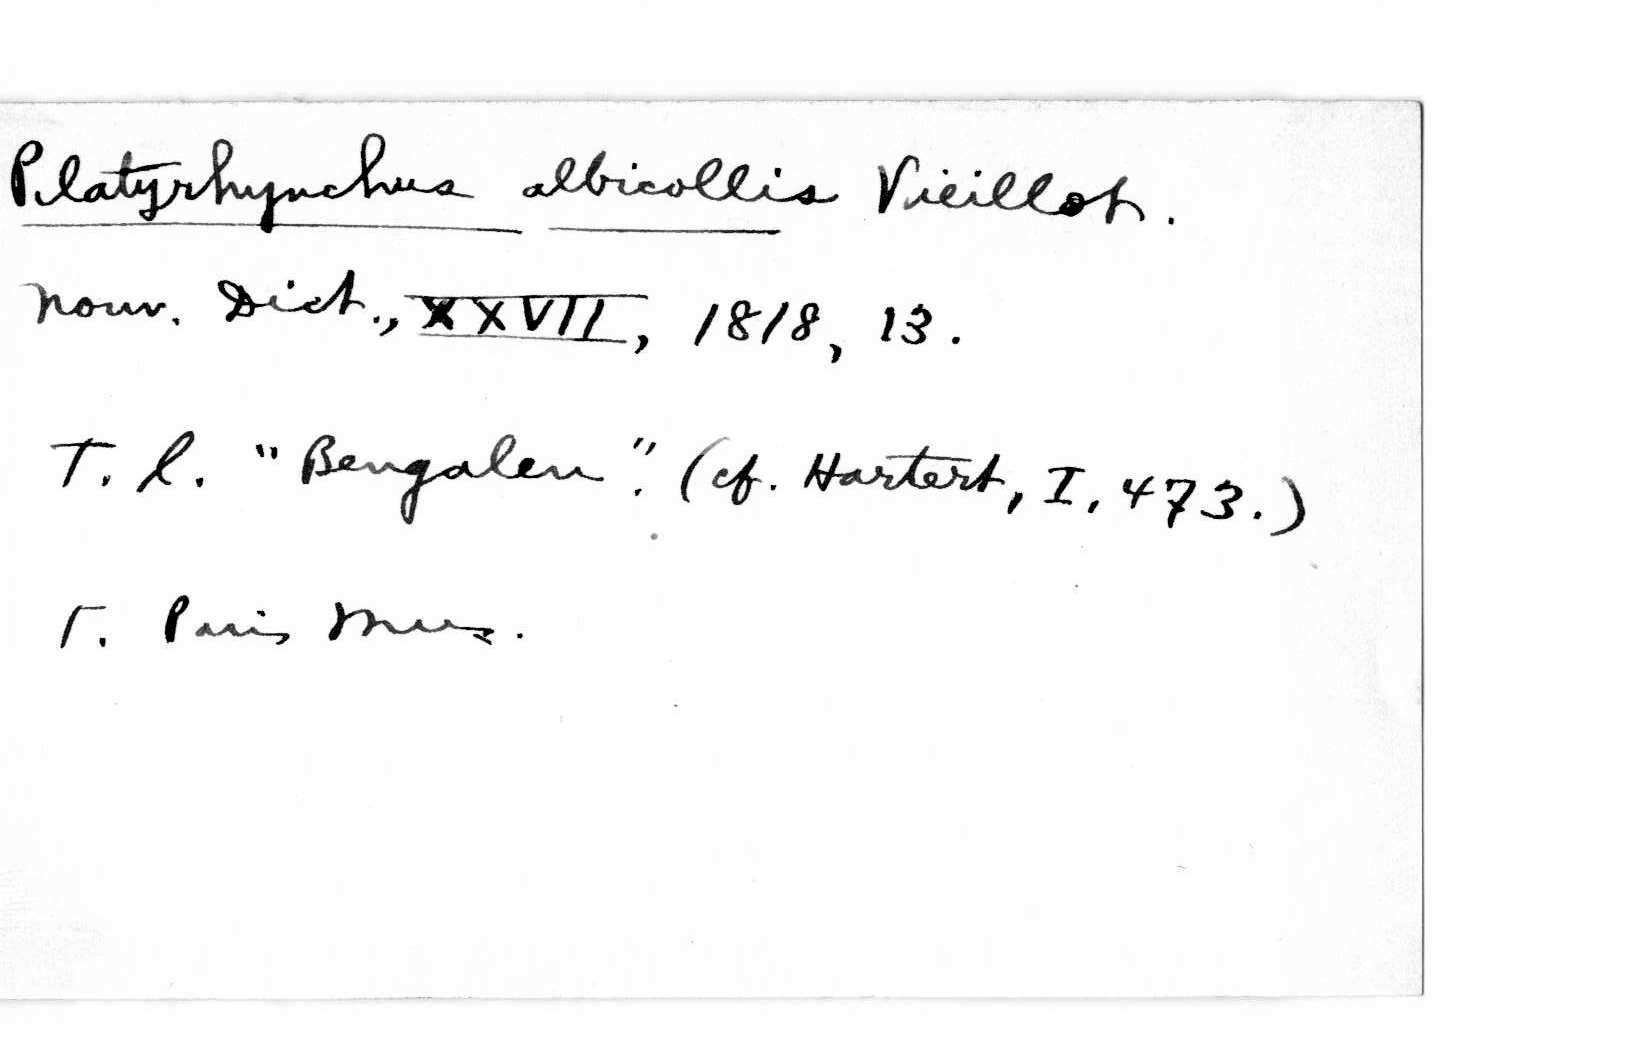 Platyrhynchus albicollis Vieillot.
Nouv. Dict., XXVII, 1818, 13.
T. l. "Bengalen". (cf. Hartert, I, 473.)
T. Paris Mus.